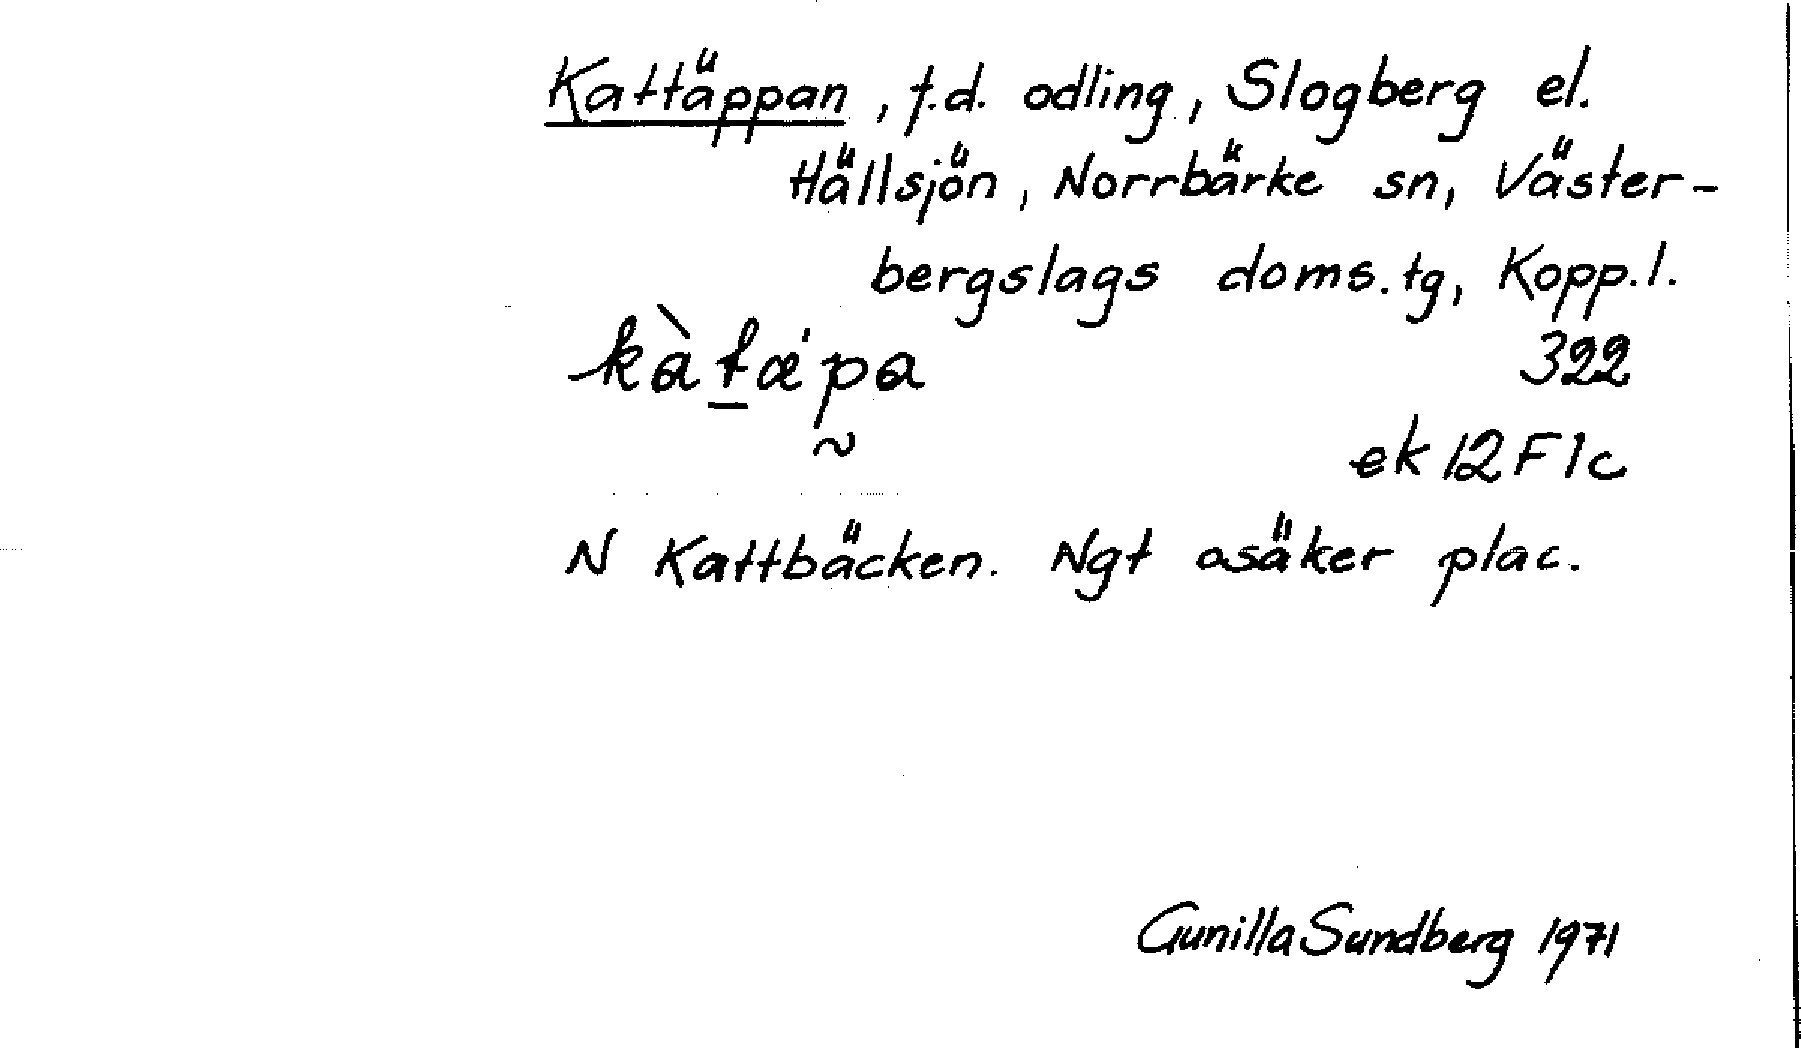 Kattäppan, f.d. odling, Slogberg el.
Hällsjön, Norrbärke sn, Väster-
bergslags doms.tg, Kopp.l.
kàt̠æ'pa 322
~ ek 12F1c
N Kattbäcken. Ngt osäker plac.
Gunilla Sundberg 1971